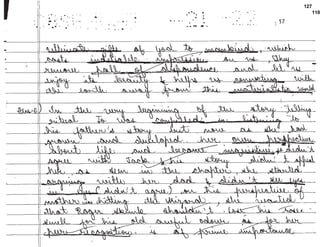 127
118
17
ultimate gifts of god to mankind, which
casts indelible impression on us. They
remove pall of despondence and let us
enjoy its beauty & helps us connecting with
the earth away from this materialistic world
In the very beginning of the story telling
ritual Jo was compelled in listening to
his father's story but now as she had
grown and developed her own perspective
about life and became inquisitive & didn't
agree with Jack & his story didn't appeal
her, as seen in the chapter, she started
arguing with her dad & didn't
didn't agree) on his perspective of
mother hitting the wizard, she wanted
that Roger Skunk shouldn't lose his rose
smell for his old odour, as for her
peer recognition is of prime importance.